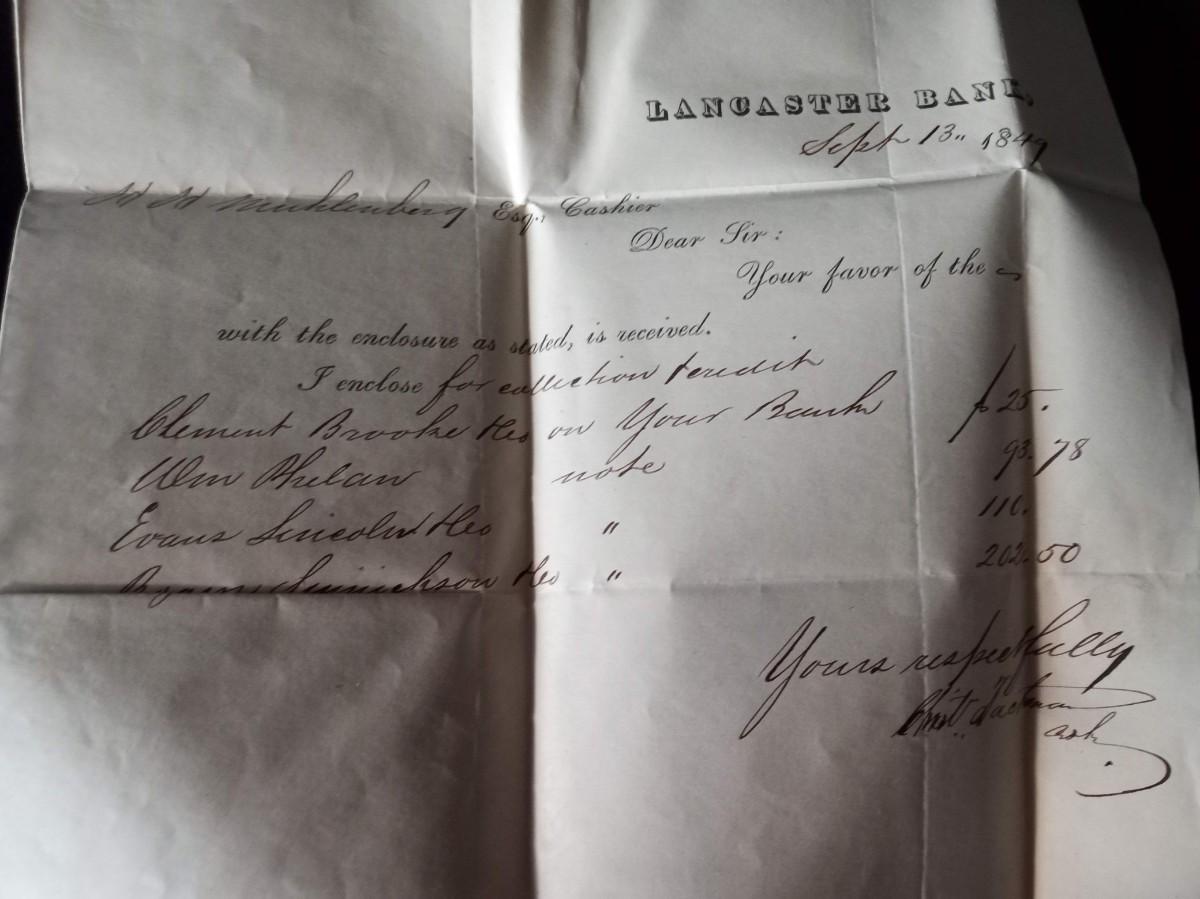 LANCASTER BANK,
Sept 13" 1849
H H Muhlenberg Esq., Cashier
Dear Sir:
Your favor of the
with the enclosure as stated, is received.
I enclose for collection & credit
Clement Brooke &Co on Your Bank $25.
Wm Phelan note 93.78
Evans Lincoln &Co " 110.
&Co " 202.50
Yours respectfully
Christ. Bachman
Cash.